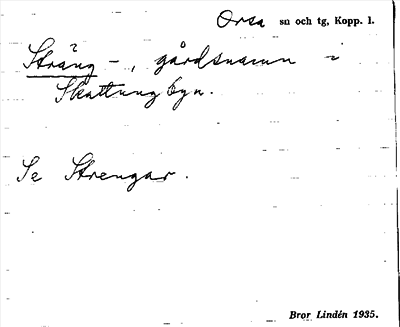 Orsa sn och tg, Kopp. l.
Sträng -, gårdsnamn i
Skattungbyn.
Se Strengar.
Bror Lindén 1935.